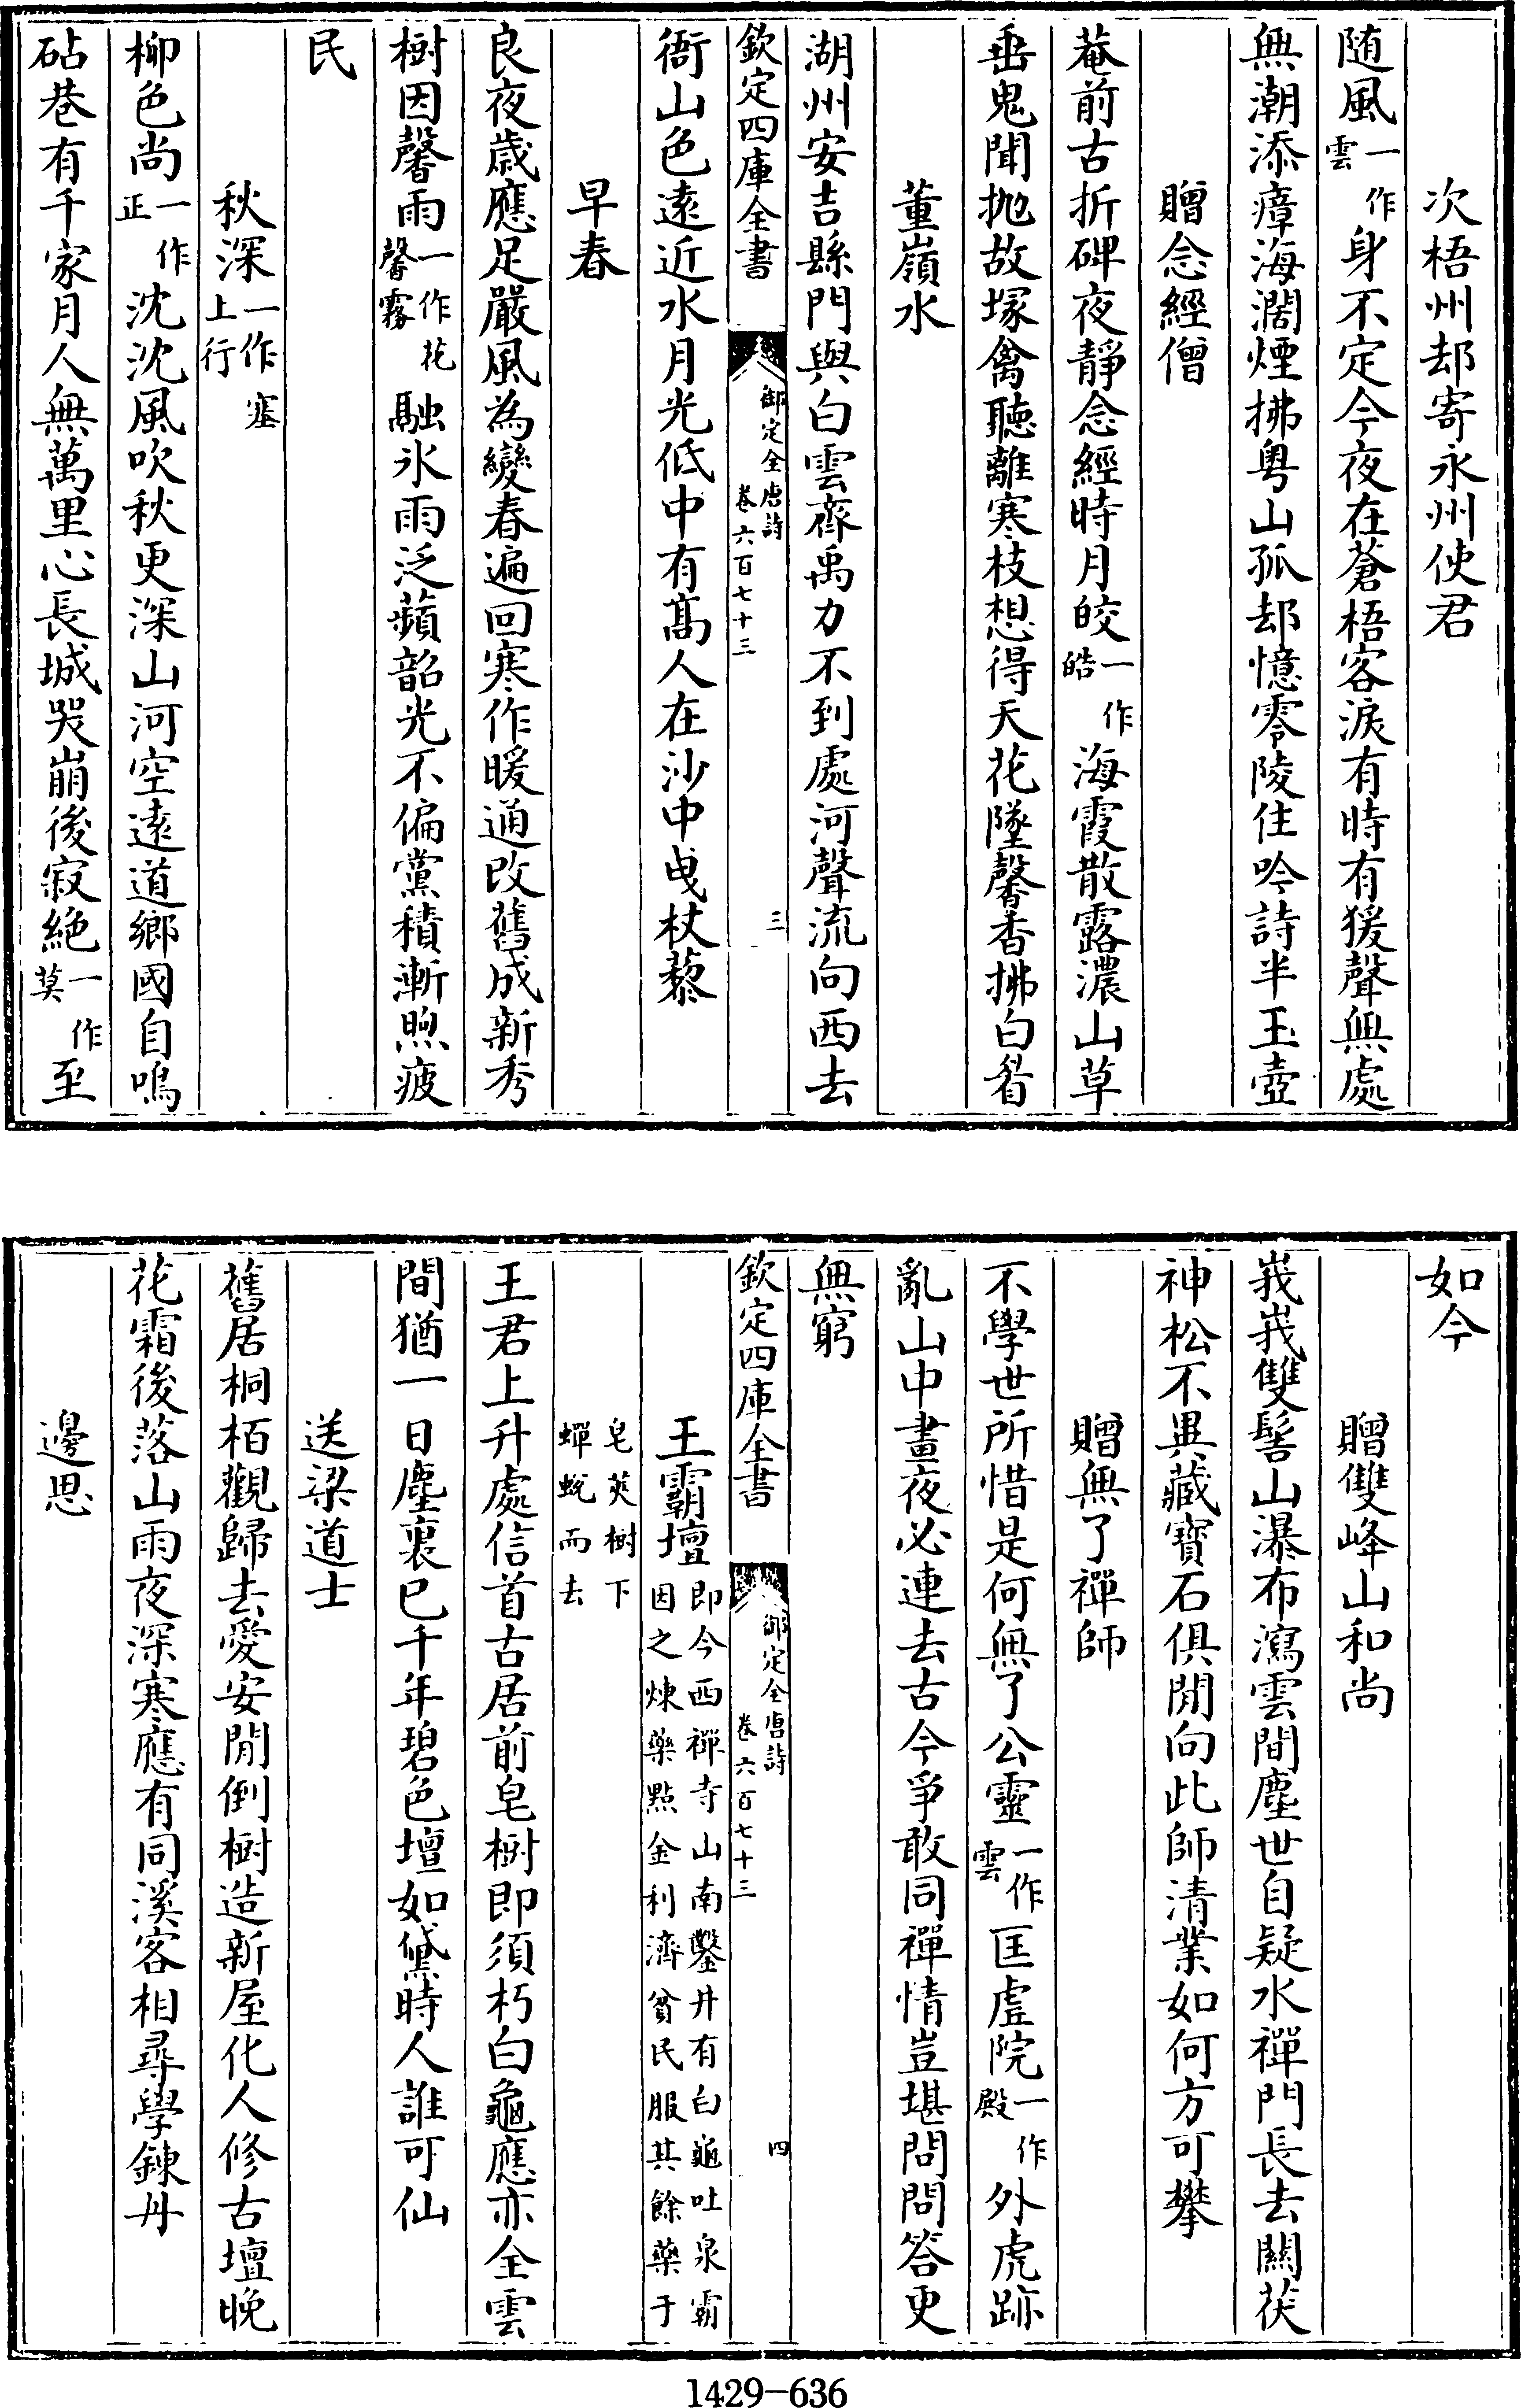 次梧州却寄永州使君
随風一作雲身不定今夜在蒼梧客淚有時有猨聲無處
無潮添瘴海濶煙拂粤山孤却憶零陵住吟詩半玉壺
贈念經僧
菴前古折碑夜靜念經時月皎一作皓海霞散露濃山草
垂鬼聞抛故塚禽聽離寒枝想得天花墜馨香拂白眉
董嶺水
湖州安吉縣門與白雲齊禹力不到處河聲流向西去
欽定四庫全書
御定全唐詩
卷六百七十三
三
衙山色逺近水月光低中有髙人在沙中曵杖藜
早春
良夜歳應足嚴風為變春遍回寒作暖通改舊成新秀
樹因馨雨一作花馨霧融氷雨泛蘋韶光不偏黨積漸煦疲
民
秋深一作塞上行
柳色尚一作正沈沈風吹秋更深山河空逺道鄉國自鳴
砧巷有千家月人無萬里心長城哭崩後寂絶一作莫至
如今
贈雙峰山和尚
峩峩雙髻山瀑布瀉雲間塵世自疑水禪門長去關茯
神松不異藏寳石俱閒向此師清業如何方可攀
贈無了禪師
不學世所惜是何無了公靈一作雲匡虚院一作殿外虎跡
亂山中晝夜必連去古今爭敢同禪情豈堪問問答更
無窮
欽定四庫全書
御定全唐詩
卷六百七十三
四
王霸壇即今西禪寺山南鑿井有白龜吐泉霸因之煉藥點金利濟貧民服其餘藥于
皂莢樹下蟬蛻而去
王君上升處信首古居前皂樹即須朽白龜應亦全雲
間猶一日塵裏已千年碧色壇如黛時人誰可仙
送梁道士
舊居桐栢觀歸去愛安閒倒樹造新屋化人修古壇晚
花霜後落山雨夜深寒應有同溪客相尋學鍊丹
邊思
1429-636